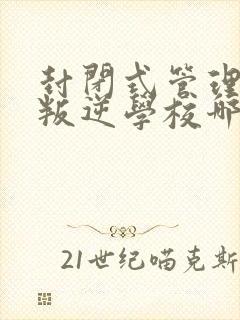 封閉式管理
叛逆學校哪
21世纪喵克斯